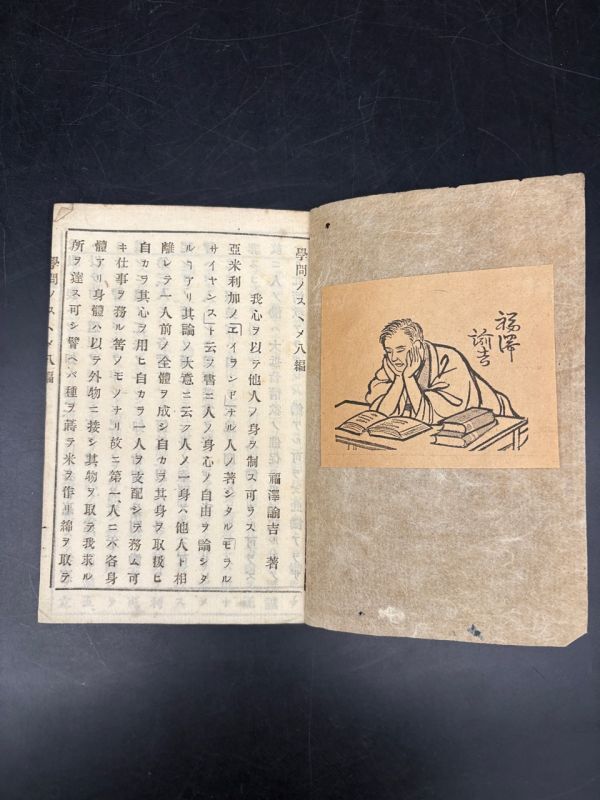 福澤
諭吉
學問ノスヽメ八編
福澤諭吉 著
我心ヲ以テ他人ノ身ヲ制ス可ラス
亞米利加ノエイランドナル人ノ著シタルモラル
サイヤンスト云フ書ニ人ノ身心ノ自由ヲ論シタ
ルヿアリ其論ノ大意ニ云フ人ノ一身ハ他人ト相
離レテ一人前ノ全體ヲ成シ自カラ其身ヲ取扱ヒ
自カラ其心ヲ用ヒ自カラ一人ヲ支配シテ務ム可
キ仕事ヲ務ル筈ノモノナリ故ニ第一、人ニハ各身
體アリ身體ハ以テ外物ニ接シ其物ヲ取テ我求ル
所ヲ達ス可シ譬ヘバ種ヲ蒔テ米ヲ作リ綿ヲ取テ
學問ノスヽメ八編